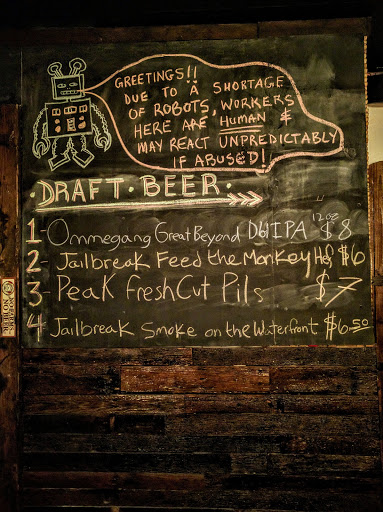 GREETINGS!!
DUE TO A SHORTAGE
OF ROBOTS, WORKERS
HERE ARE HUMAN &
MAY REACT UNPREDICTABLY
IF ABUSED!
·DRAFT·BEER·
1- Ommegang Great Beyond DblIPA 12oz $8
2- Jailbreak Feed the Monkey Hef $6
3- Peak Fresh Cut Pils $7
4- Jailbreak Smoke on the Waterfront $6.50